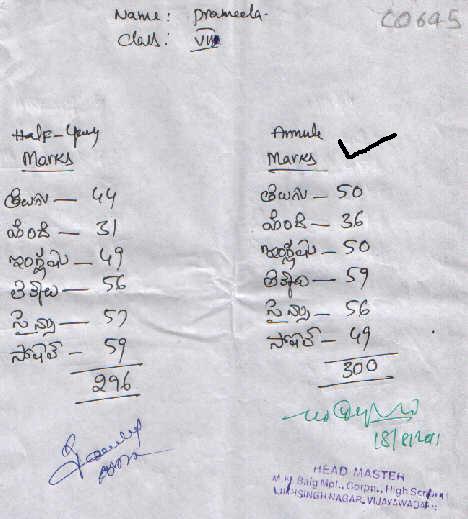 CO695
Name: Prameela.
Class: VIII
Half-yearly
Marks
తెలుగు — 44
హిందీ — 31
ఇంగ్లీషు — 49
లెక్కలు — 56
సైన్సు — 57
సోషల్ — 59
296
Annule
Marks
తెలుగు — 50
హిందీ — 36
ఇంగ్లీషు — 50
లెక్కలు — 59
సైన్సు — 56
సోషల్ — 49
300
HEAD MASTER
Baig Mpl., Corpn., High School
SINGH NAGAR, VIJAYAWADA